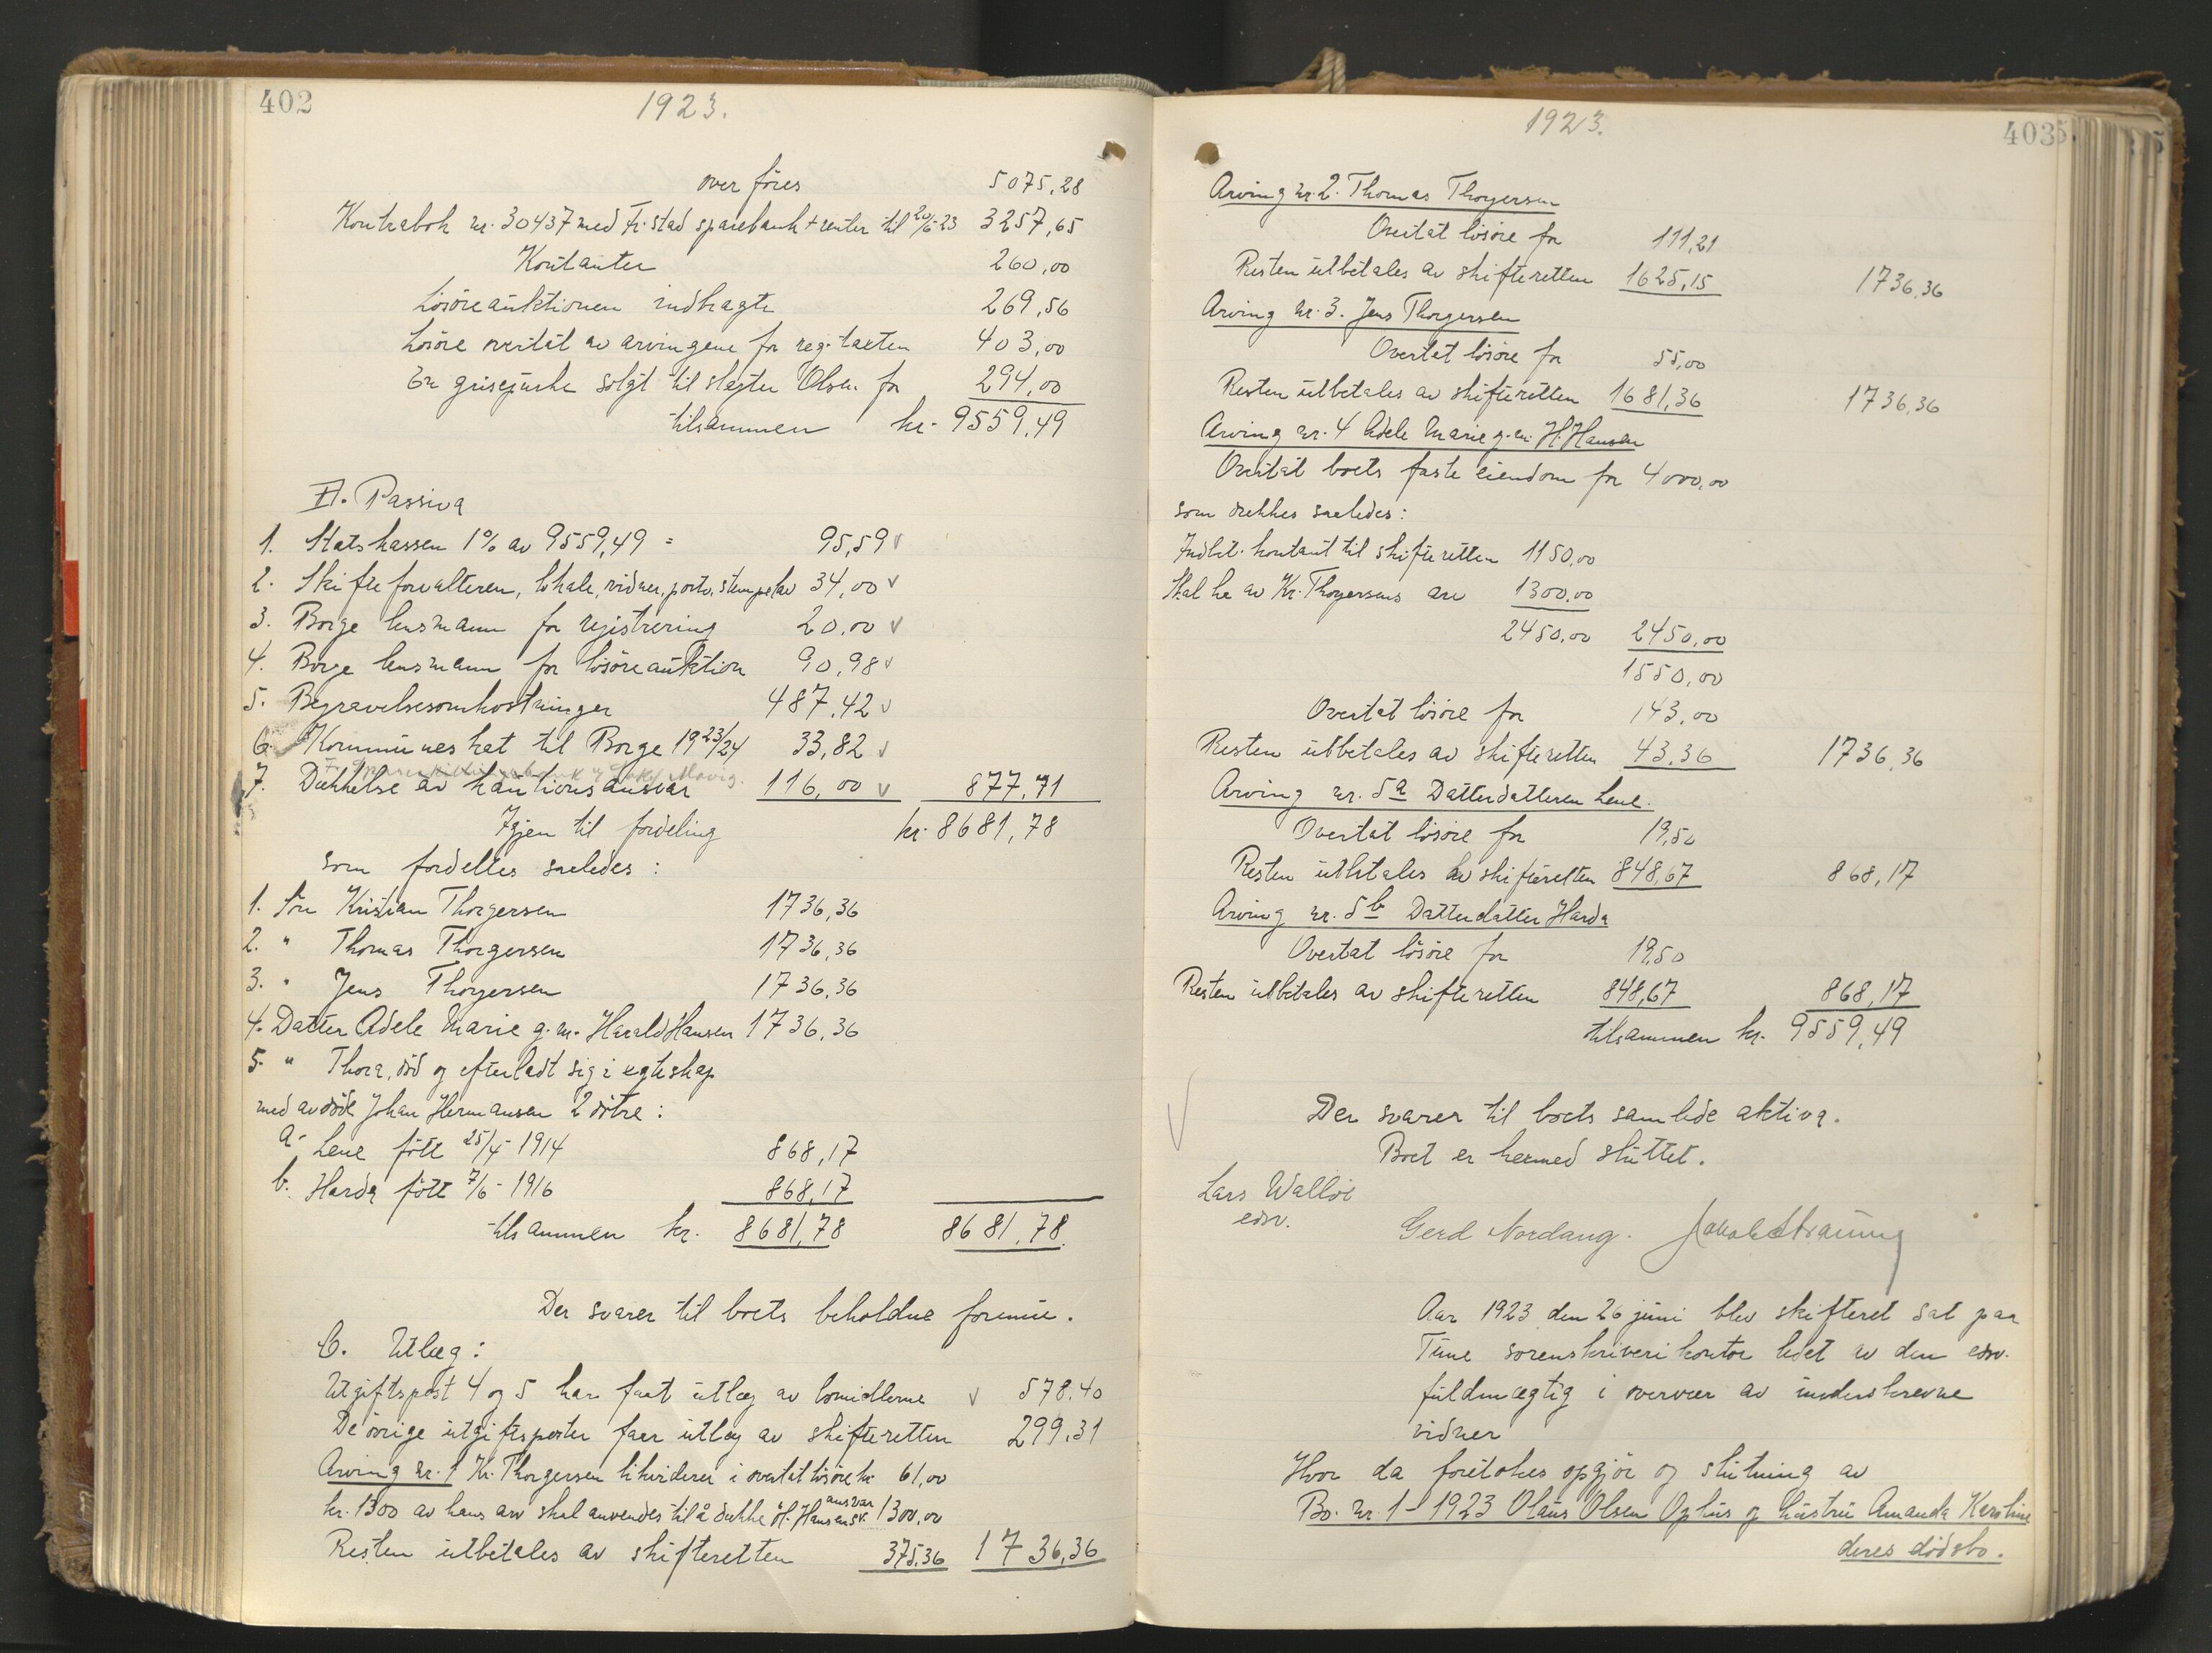 402
1923.
over föres 5075,28
Kontrabok nr. 30437 med Fr.stad sparebank + renter til 20/6-23 3257,65
Kontanter 260,00
Lösöreauktionen indbragte 269,56
Lösöre overtat av arvingene for reg. taxten 403,00
En grisepurke solgt til slagter Olsen for 294,00
tilsammen kr. 9559,49
II. Passiva
1. Statskassen 1% av 9559,49 = 95,59 v
2. Skifteforvalteren, lokale, vidner, porto, stempelav 34,00 v
3. Borge lensmann for registrering 20,00 v
4. Borge lensmann for lösöreauktion 90,98 v
5. Begravelsesomkostninger 487,42 v
6. Kommuneskat til Borge 1923/24 33,82 v
7. Dækkelse av kautionsansvar 116,00 v 877,71
Igjen til fordeling kr. 8681,78
som fordeltes saaledes:
1. Sön Kristian Thorgersen 1736,36
2. " Thomas Thorgersen 1736,36
3. " Jens Thorgersen 1736,36
4. Datter Adele Marie g.m. Harald Hansen 1736,36
5. " Thora, död og efterladt sig i egteskap
med avdöde Johan Hermansen 2 dötre:
a. Lene fött 25/4-1914 868,17
b. Harda fött 7/6-1916 868,17
tilsammen kr. 8681,78 8681,78
Der svarer til boets beholdne formue.
C. Utlæg:
Utgiftspost 4 og 5 har faat utlæg av bomidlerne v 578,40
De övrige utgiftsposter faar utlæg av skifteretten 299,31
Arving nr. 1 Kr. Thorgersen likviderer i overtat lösöre kr. 61,00
ansvar
kr. 1300 av hans arv skal anvendes til å dække H. Hansens 1300,00
Resten utbetales av skifteretten 375,36 1736,36
1923.
403
Arving nr. 2. Thomas Thorgersen
Overtat lösöre for 111,21
Resten utbetales av skifteretten 1625,15 1736,36
Arving nr. 3. Jens Thorgersen
Overtat lösöre for 55,00
Resten utbetales av skifteretten 1681,36 1736,36
Arving nr. 4 Adele Marie g.m. H. Hansen
Overtat boets faste eiendom for 4000,00
som dækkes saaledes:
Indbet. kontant til skifteretten 1150,00
Skal ha av Kr. Thorgersens arv 1300,00
2450,00 2450,00
1550,00
Overtat lösöre for 143,00
Resten utbetales av skifteretten 43,36 1736,36
Arving nr. 5a Datterdatteren Lene.
Overtat lösöre for 19,50
Resten utbetales av skifteretten 848,67 868,17
Arving nr. 5b Datterdatter Harda
Overtat lösöre for 19,50
Resten utbetales av skifteretten 848,67 868,17
tilsammen kr. 9559,49
Der svarer til boets samlede aktiva.
Boet er hermed sluttet.
Lars Walløe
edsv.
Gerd Nordang.
Aar 1923 den 26 juni blev skifteret sat paa
Tune sorenskriverikontor ledet av den edsv.
fuldmægtig i overvær av underskrevne
vidner
Hvor da foretokes opgjör og slutning av
Bo. nr. 1-1923 Olaus Olsen Ophus og hustru Amanda Karoline
deres dödsbo.